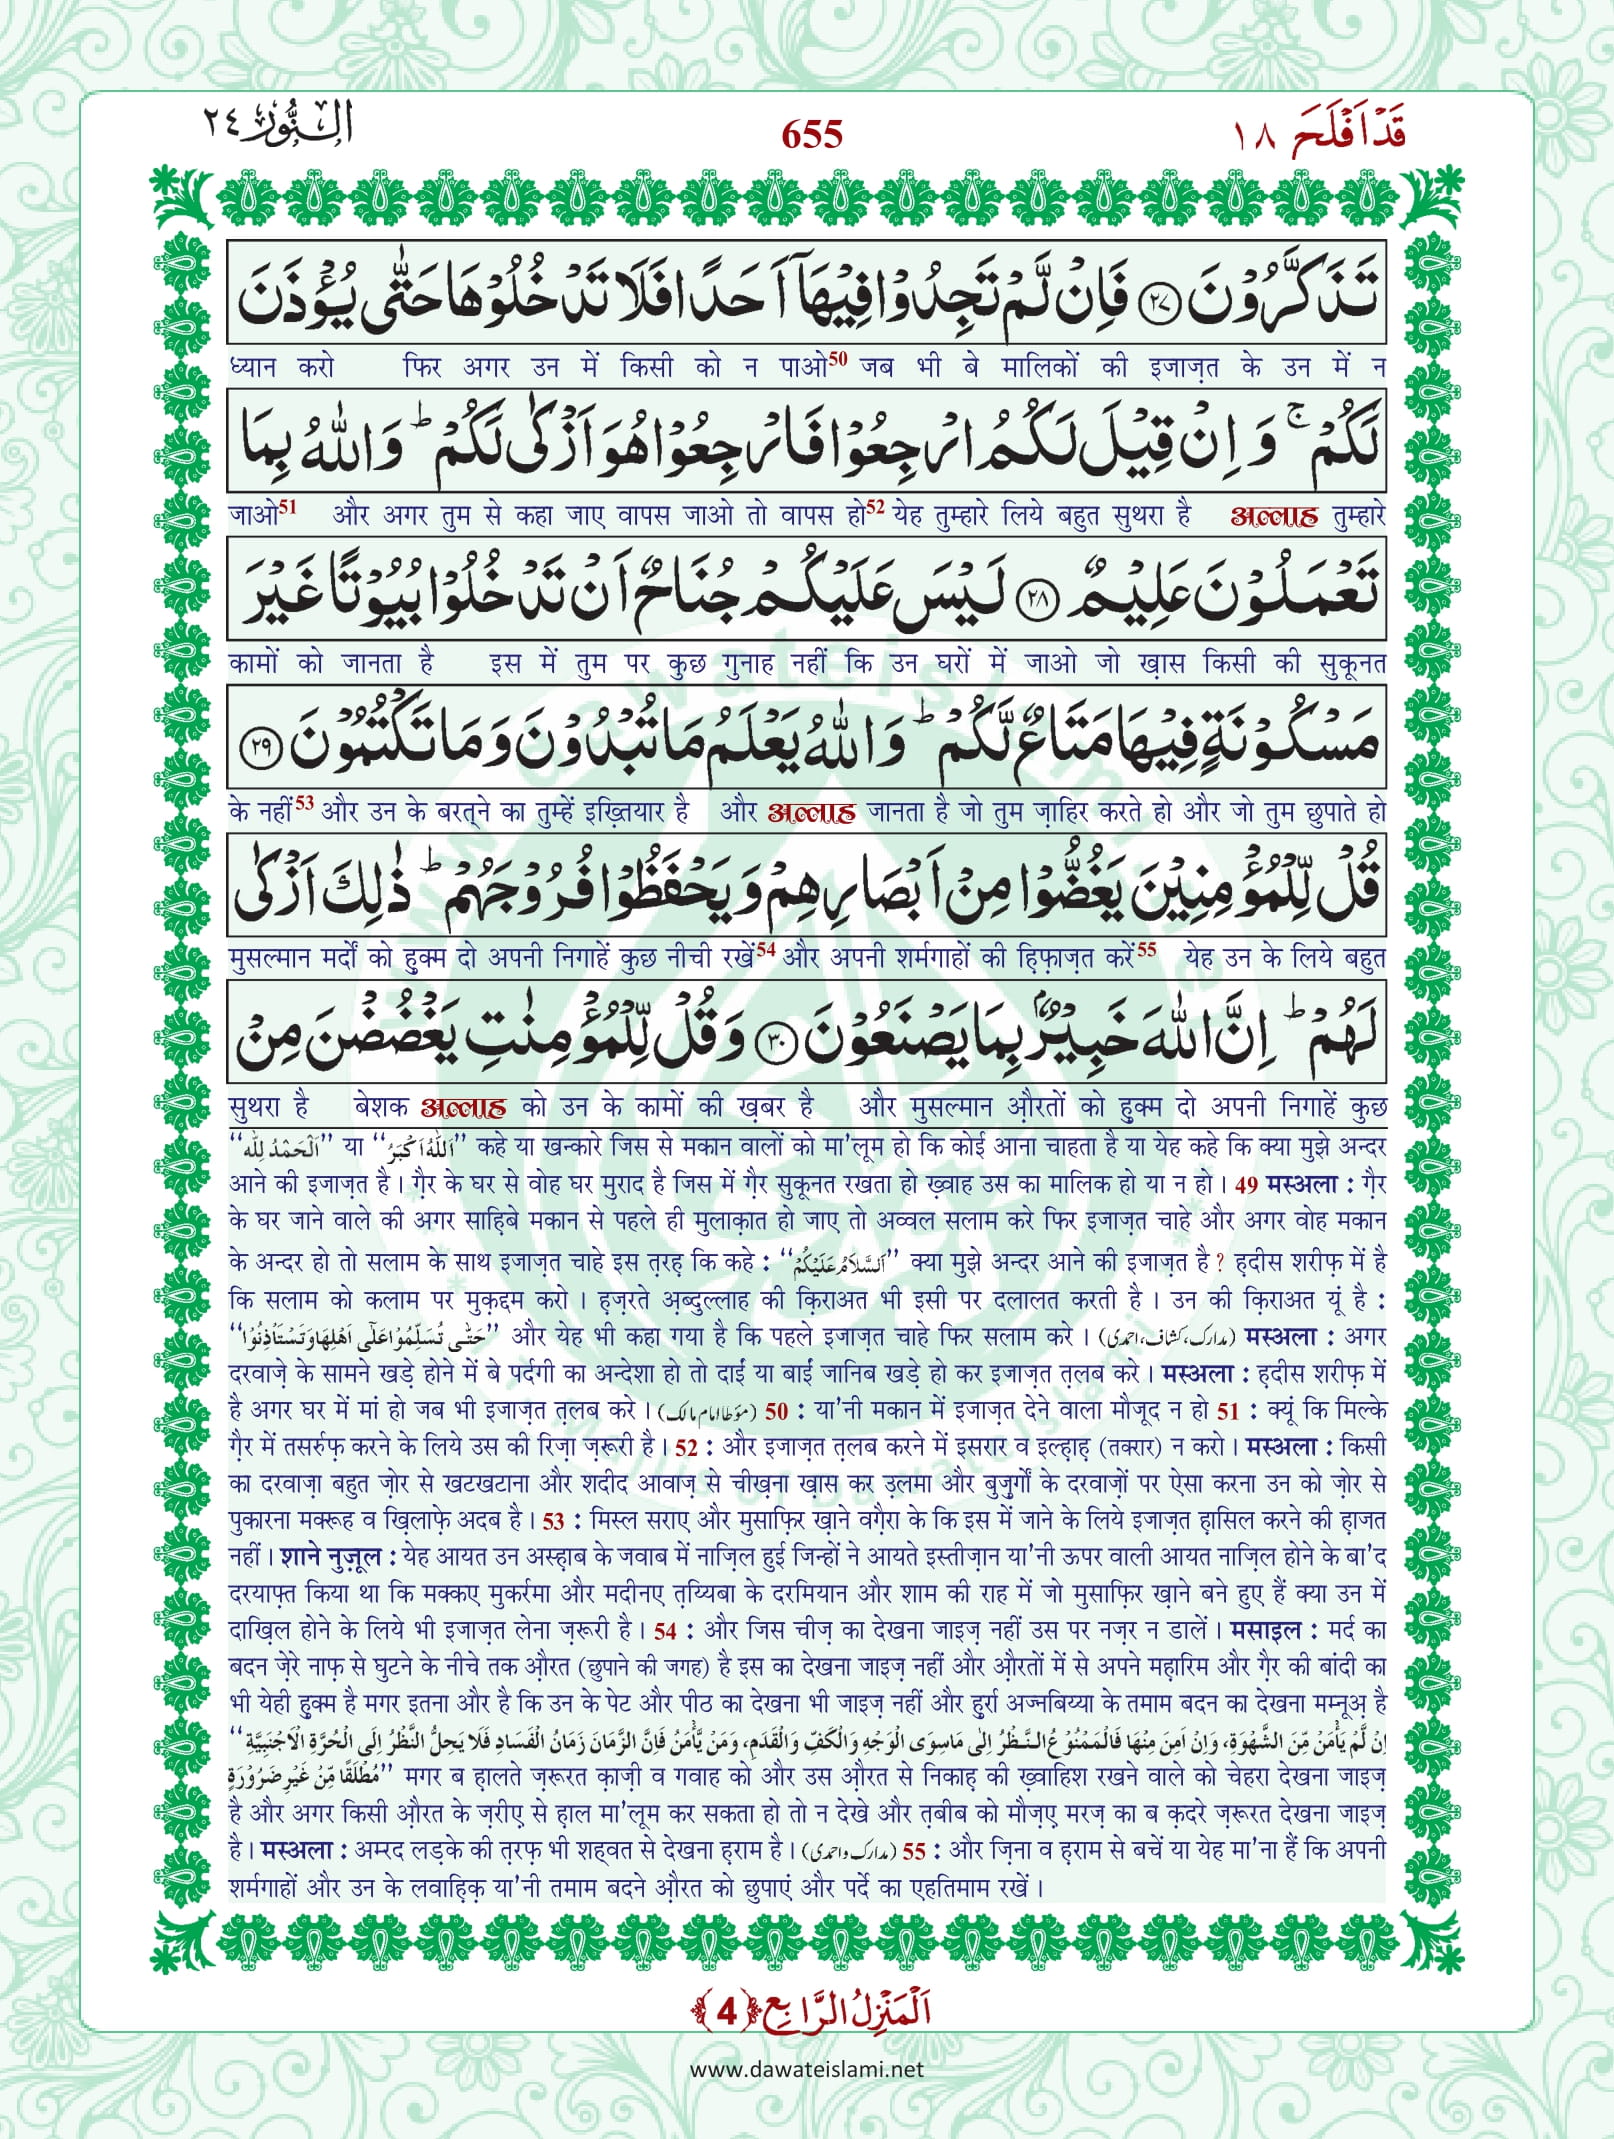 قَدْ اَفْلَحَ ١٨
655
اَلنُّوْر ٢٤
تَذَكَّرُوْنَ ﴿٢٧﴾ فَاِنْ لَّمْ تَجِدُوْا فِیْهَاۤ اَحَدًا فَلَا تَدْخُلُوْهَا حَتّٰى یُؤْذَنَ
ध्यान करो फिर अगर उन में किसी को न पाओ50 जब भी बे मालिकों की इजाज़त के उन में न
لَكُمْ ۚ وَ اِنْ قِیْلَ لَكُمُ ارْجِعُوْا فَارْجِعُوْا هُوَ اَزْكٰى لَكُمْ ؕ وَ اللّٰهُ بِمَا
जाओ51 और अगर तुम से कहा जाए वापस जाओ तो वापस हो52 येह तुम्हारे लिये बहुत सुथरा है अल्लाह तुम्हारे
تَعْمَلُوْنَ عَلِیْمٌ ﴿٢٨﴾ لَیْسَ عَلَیْكُمْ جُنَاحٌ اَنْ تَدْخُلُوْا بُیُوْتًا غَیْرَ
कामों को जानता है इस में तुम पर कुछ गुनाह नहीं कि उन घरों में जाओ जो ख़ास किसी की सुकूनत
مَسْكُوْنَةٍ فِیْهَا مَتَاعٌ لَّكُمْ ؕ وَ اللّٰهُ یَعْلَمُ مَا تُبْدُوْنَ وَ مَا تَكْتُمُوْنَ ﴿٢٩﴾
के नहीं53 और उन के बरत्ने का तुम्हें इख़्तियार है और अल्लाह जानता है जो तुम ज़ाहिर करते हो और जो तुम छुपाते हो
قُلْ لِّلْمُؤْمِنِیْنَ یَغُضُّوْا مِنْ اَبْصَارِهِمْ وَ یَحْفَظُوْا فُرُوْجَهُمْ ؕ ذٰلِكَ اَزْكٰى
मुसल्मान मर्दों को हुक्म दो अपनी निगाहें कुछ नीची रखें54 और अपनी शर्मगाहों की हि़फ़ाज़त करें55 येह उन के लिये बहुत
لَهُمْ ؕ اِنَّ اللّٰهَ خَبِیْرٌۢ بِمَا یَصْنَعُوْنَ ﴿٣٠﴾ وَ قُلْ لِّلْمُؤْمِنٰتِ یَغْضُضْنَ مِنْ
सुथरा है बेशक अल्लाह को उन के कामों की ख़बर है और मुसल्मान औ़रतों को हुक्म दो अपनी निगाहें कुछ
‘‘اَلْحَمْدُ لِلّٰه’’ या ‘‘اَللّٰهُ اَكْبَرُ’’ कहे या खन्कारे जिस से मकान वालों को मा'लूम हो कि कोई आना चाहता है या येह कहे कि क्या मुझे अन्दर
आने की इजाज़त है। ग़ैर के घर से वोह घर मुराद है जिस में ग़ैर सुकूनत रखता हो ख़्वाह उस का मालिक हो या न हो। 49 मस्अला : ग़ैर
के घर जाने वाले की अगर साहि़बे मकान से पहले ही मुलाक़ात हो जाए तो अव्वल सलाम करे फिर इजाज़त चाहे और अगर वोह मकान
के अन्दर हो तो सलाम के साथ इजाज़त चाहे इस त़रह़ कि कहे : ‘‘اَلسَّلَامُ عَلَیْكُمْ’’ क्या मुझे अन्दर आने की इजाज़त है? ह़दीस शरीफ़ में है
कि सलाम को कलाम पर मुक़द्दम करो। ह़ज़रते अ़ब्दुल्लाह की क़िराअत भी इसी पर दलालत करती है। उन की क़िराअत यूं है :
‘‘حَتّٰى تُسَلِّمُوْا عَلٰٓى اَهْلِهَا وَتَسْتَاْذِنُوْا’’ और येह भी कहा गया है कि पहले इजाज़त चाहे फिर सलाम करे। (مدارک، کشاف، احمدی) मस्अला : अगर
दरवाज़े के सामने खड़े होने में बे पर्दगी का अन्देशा हो तो दाईं या बाईं जानिब खड़े हो कर इजाज़त त़लब करे। मस्अला : ह़दीस शरीफ़ में
है अगर घर में मां हो जब भी इजाज़त त़लब करे। (مؤطا امام مالک) 50 : या'नी मकान में इजाज़त देने वाला मौजूद न हो 51 : क्यूं कि मिल्के
ग़ैर में तसर्रुफ़ करने के लिये उस की रिज़ा ज़रूरी है। 52 : और इजाज़त त़लब करने में इसरार व इल्ह़ाह़ (तक्रार) न करो। मस्अला : किसी
का दरवाज़ा बहुत ज़ोर से खटखटाना और शदीद आवाज़ से चीख़ना ख़ास कर उ़लमा और बुज़ुर्गों के दरवाज़ों पर ऐसा करना उन को ज़ोर से
पुकारना मक्रूह व ख़िलाफ़े अदब है। 53 : मिस्ल सराए और मुसाफ़िर ख़ाने वग़ैरा के कि इस में जाने के लिये इजाज़त हा़सिल करने की हा़जत
नहीं। शाने नुज़ूल : येह आयत उन अस्ह़ाब के जवाब में नाज़िल हुई जिन्हों ने आयते इस्तीज़ान या'नी ऊपर वाली आयत नाज़िल होने के बा'द
दरयाफ़्त किया था कि मक्कए मुकर्रमा और मदीनए त़य्यिबा के दरमियान और शाम की राह में जो मुसाफ़िर ख़ाने बने हुए हैं क्या उन में
दाख़िल होने के लिये भी इजाज़त लेना ज़रूरी है। 54 : और जिस चीज़ का देखना जाइज़ नहीं उस पर नज़र न डालें। मसाइल : मर्द का
बदन ज़ेरे नाफ़ से घुटने के नीचे तक औ़रत (छुपाने की जगह) है इस का देखना जाइज़ नहीं और औ़रतों में से अपने मह़ारिम और ग़ैर की बांदी का
भी येही हुक्म है मगर इतना और है कि उन के पेट और पीठ का देखना भी जाइज़ नहीं और हुर्रा अज्नबिय्या के तमाम बदन का देखना मम्नूअ़ है
‘‘اِنْ لَّمْ یَأْمَنْ مِّنَ الشَّهْوَةِ، وَاِنْ اَمِنَ مِنْهَا فَالْمَمْنُوْعُ النَّظْرُ اِلٰى مَاسِوَى الْوَجْهِ وَالْكَفِّ وَالْقَدَمِ، وَمَنْ یَّأْمَنُ فَاِنَّ الزَّمَانَ زَمَانُ الْفَسَادِ فَلَا یَحِلُّ النَّظْرُ اِلَى الْحُرَّةِ الْاَجْنَبِیَّةِ
مُطْلَقًا مِّنْ غَیْرِ ضَرُوْرَةٍ’’ मगर ब ह़ालते ज़रूरत क़ाज़ी व गवाह को और उस औ़रत से निकाह़ की ख़्वाहिश रखने वाले को चेहरा देखना जाइज़
है और अगर किसी औ़रत के ज़रीए से ह़ाल मा'लूम कर सकता हो तो न देखे और त़बीब को मौज़ए मरज़ का ब क़दरे ज़रूरत देखना जाइज़
है। मस्अला : अम्रद लड़के की त़रफ़ भी शह्वत से देखना ह़राम है। (مدارک و احمدی) 55 : और ज़िना व ह़राम से बचें या येह मा'ना हैं कि अपनी
शर्मगाहों और उन के लवाहि़क़ या'नी तमाम बदने औ़रत को छुपाएं और पर्दे का एहतिमाम रखें।
اَلْمَنْزِلُ الرَّابِع ﴿4﴾
www.dawateislami.net